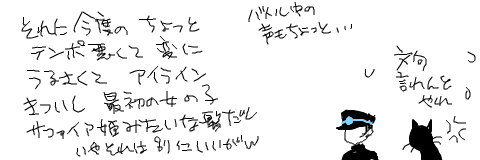 それに今度の ちょっと
テンポ悪くて 変に
うるさくて アイライン
きついし 最初の女の子
サファイア姫みたいな髪だし
いやそれは別にいいがw
バトル中の
声もちょっと…
文句
言われんと
やれ